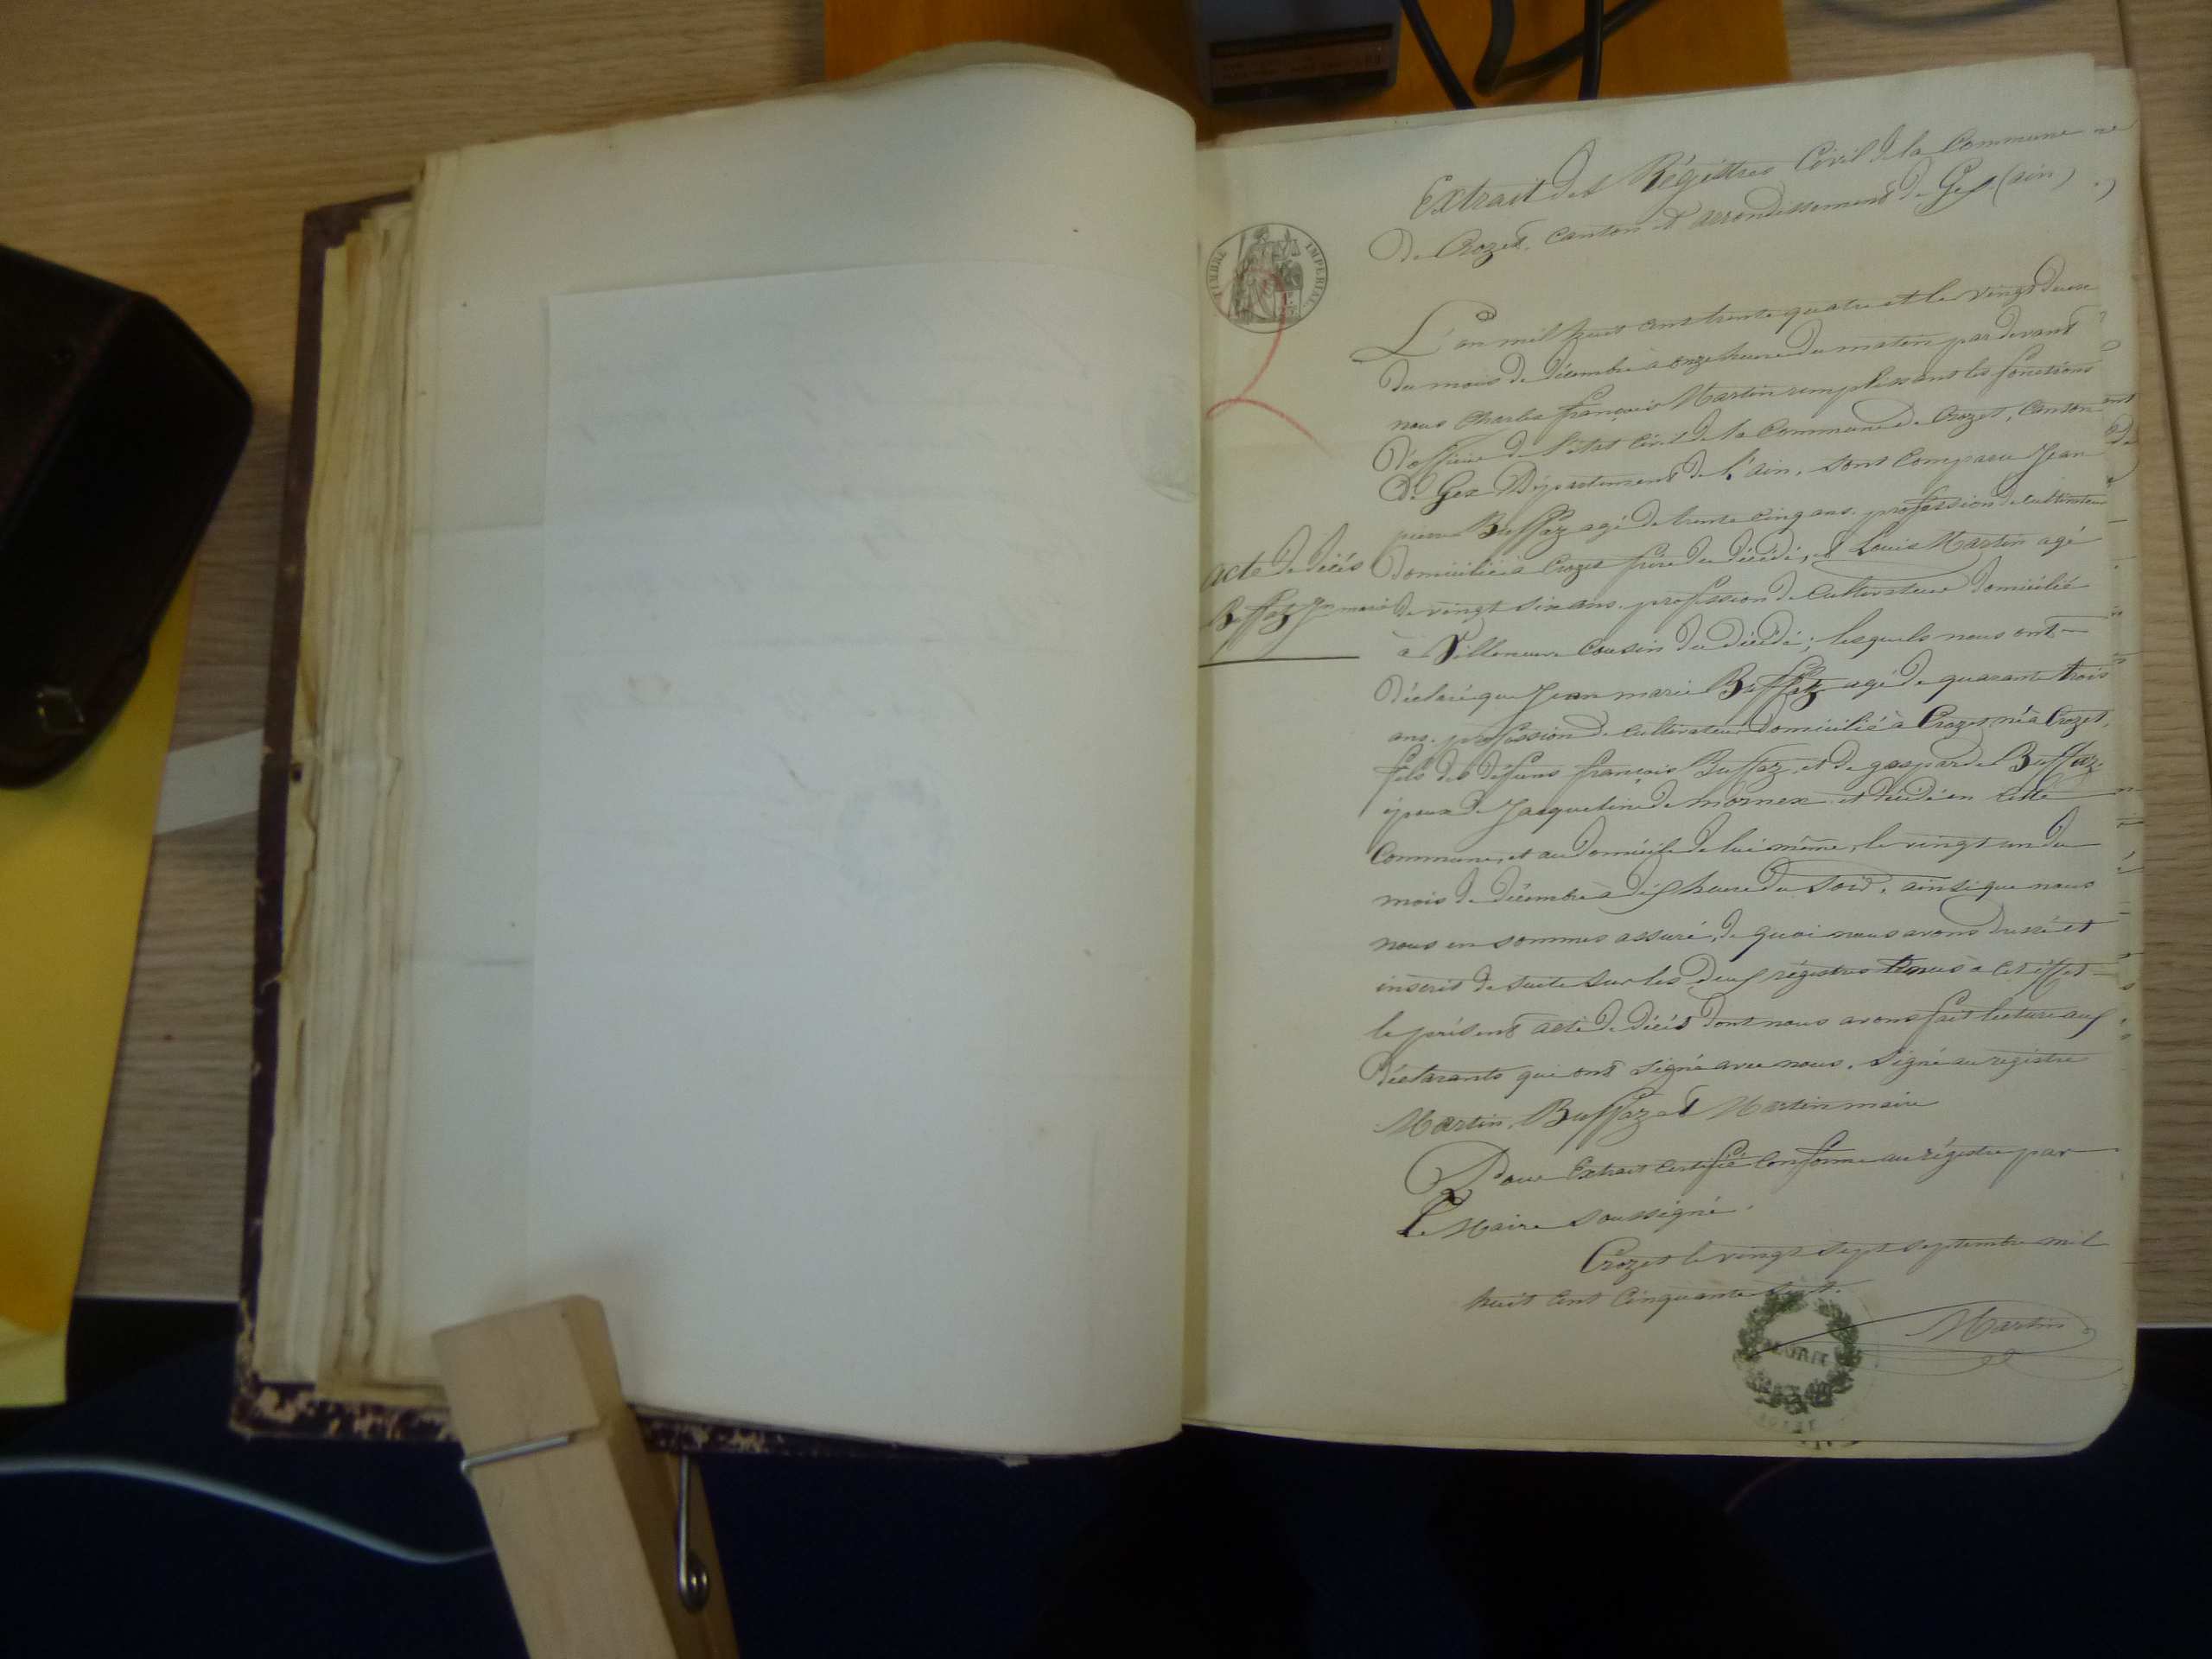 Extrait des Régistres Civil de la Commune
de Crozet, canton et arrondissement de Gex (ain)
TIMBRE IMPERIAL
L'an mil huit cent trente quatre et le vingt deux
du mois de décembre à onze heure du matin par devant
nous Charles françois Martin remplissant les fonctions
d'officier de l'état Civil de la Commune de Crozet, Canton
de Gex Département de l'ain, sont Comparu Jean
pierre Buffaz agé de trente cinq ans, profession de cultivateur
acte de décés
Buffaz Jn marie
domicilié à Crozet frère du décédé, et Louis Martin agé
de vingt six ans, profession de Cultivateur domicilié
à Villeneuve Cousin du décédé; lesquels nous ont
déclaré que Jean marie Buffaz agé de quarante trois
ans, profession de Cultivateur domicilié à Crozet né à Crozet,
fils des défuns françois Buffaz et de gasparde Buffaz
époux de Jacqueline de mornex et décédé en cette
Commune, et au domicile de lui même, le vingt un du
mois de décembre à dix heure du soir, ainsi que nous
nous en sommes assuré, de quoi nous avons dressé et
inscrit de suite sur les deux régistres tenus à cet éffet
le présent acte de décés dont nous avons fait lecture aux
déclarants qui ont signé avec nous. Signé au registre
Martin, Buffaz et Martin maire
Pour Extrait certifié Conforme au régistre par
Le Maire soussigné.
Crozet le vingt sept septembre mil
huit cent Cinquante
Martin
MAIRIE